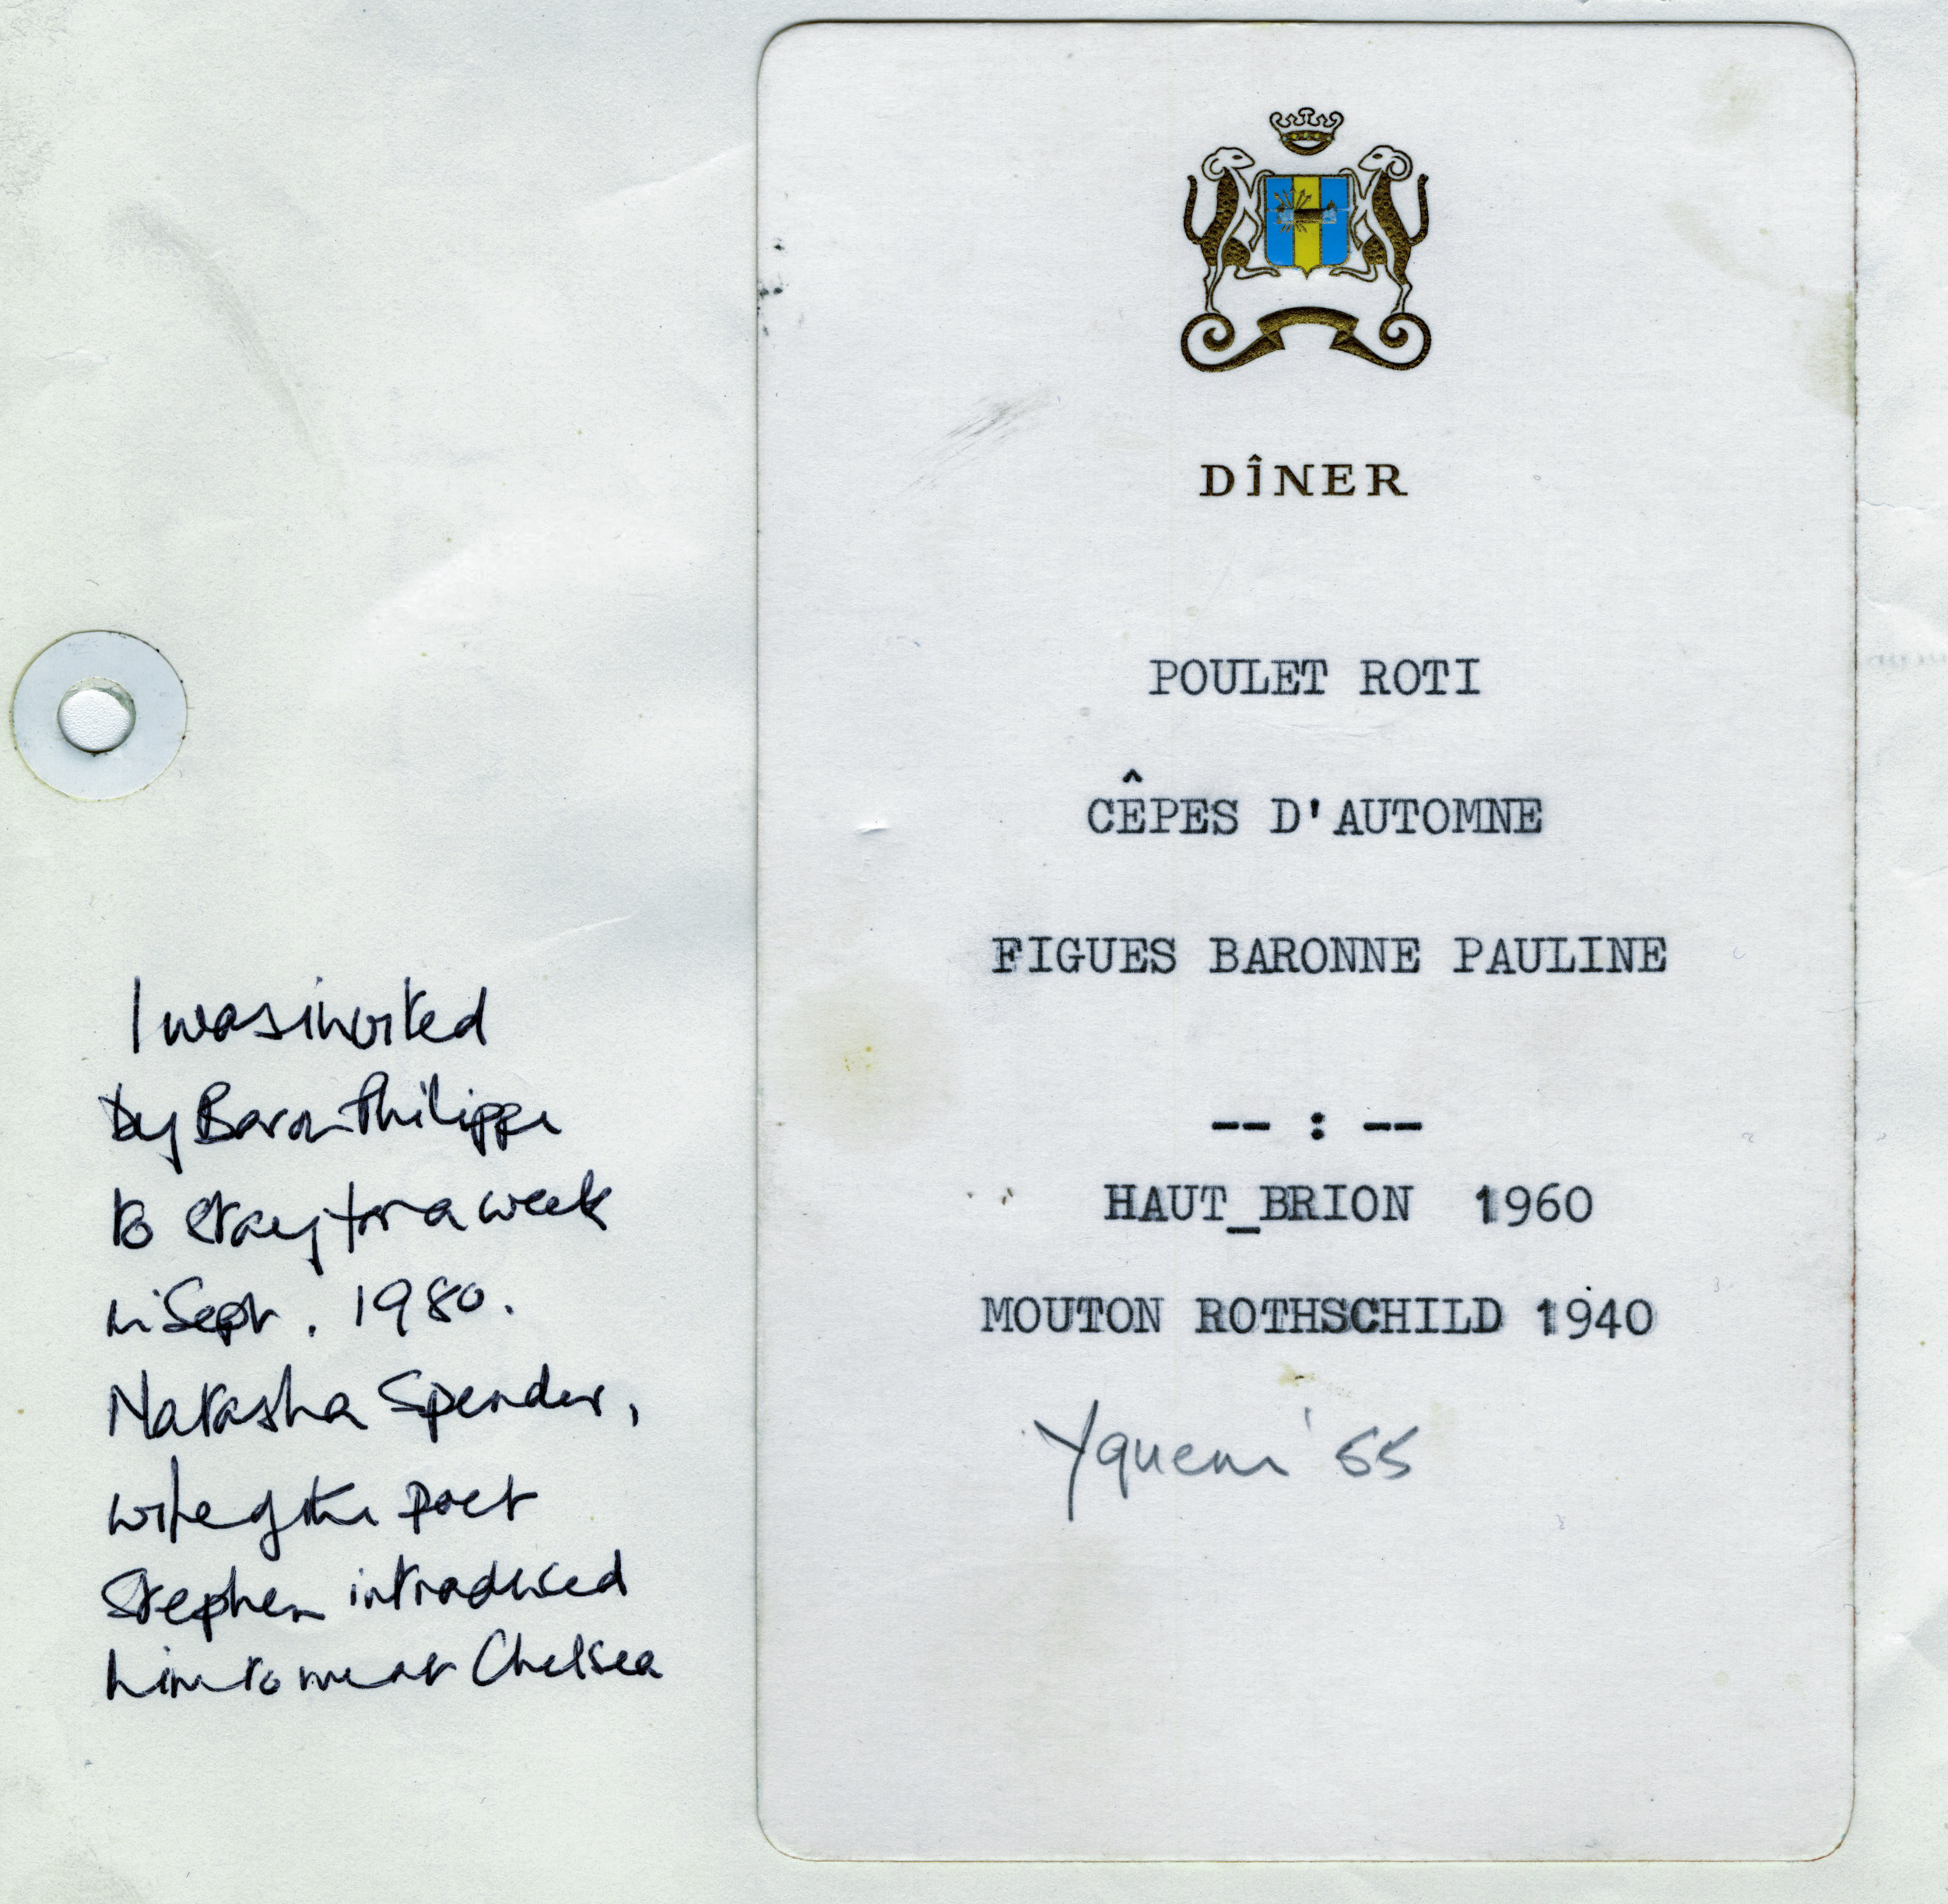 DÎNER
POULET ROTI
CÊPES D'AUTOMNE
FIGUES BARONNE PAULINE
-- : --
HAUT_BRION 1960
MOUTON ROTHSCHILD 1940
Yquem '55
I was invited
by Baron Philippe
to stay for a week
in Sept. 1980.
Natasha Spender,
wife of the poet
Stephen introduced
him to me at Chelsea